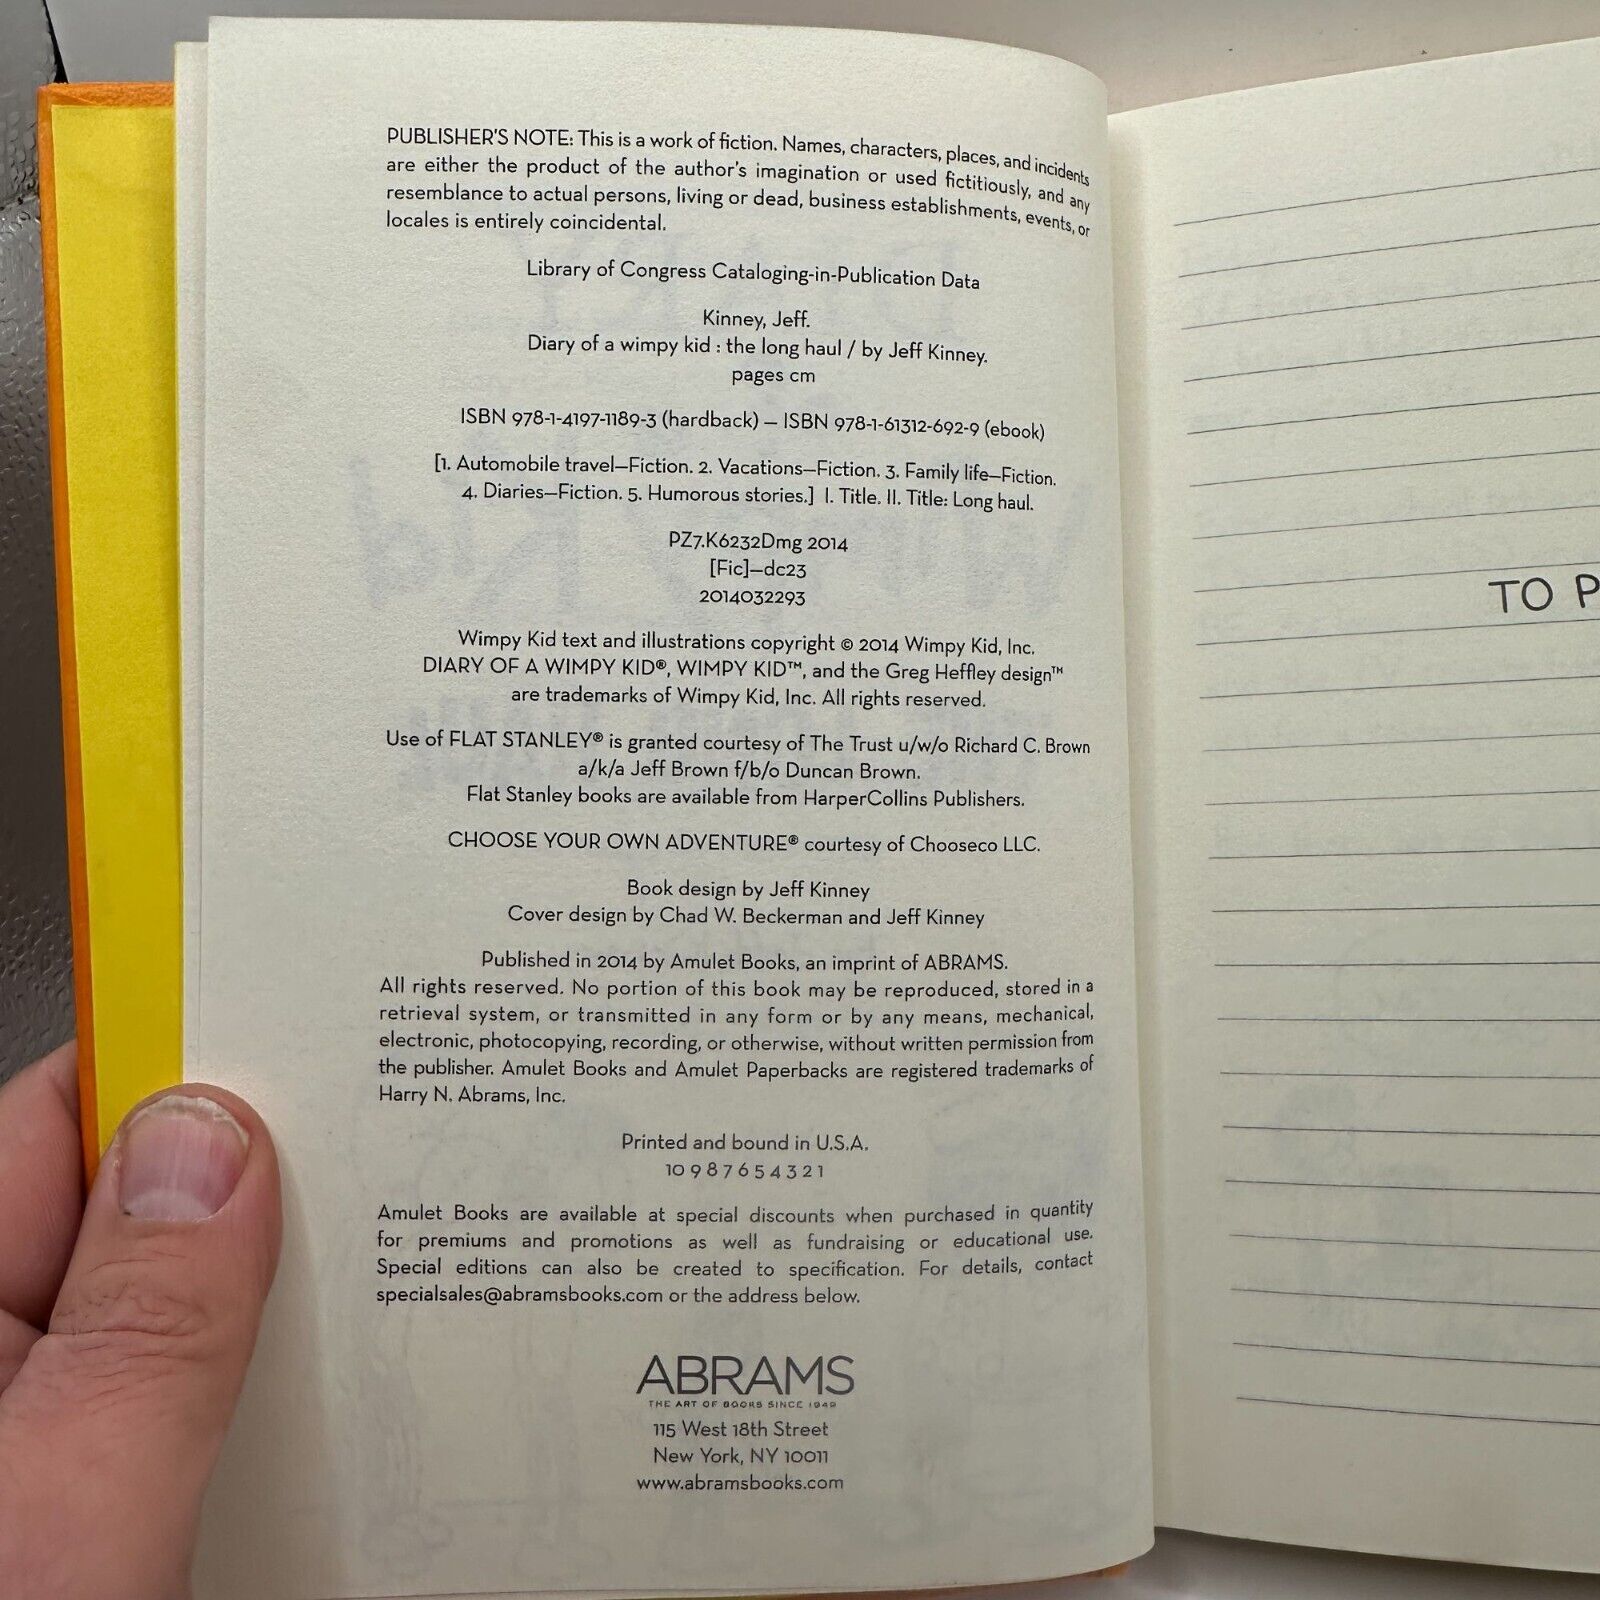 PUBLISHER'S NOTE: This is a work of fiction. Names, characters, places, and incidents
are either the product of the author's imagination or used fictitiously, and any
resemblance to actual persons, living or dead, business establishments, events, or
locales is entirely coincidental.
Library of Congress Cataloging-in-Publication Data
Kinney, Jeff.
Diary of a wimpy kid : the long haul / by Jeff Kinney.
pages cm
ISBN 978-1-4197-1189-3 (hardback) — ISBN 978-1-61312-692-9 (ebook)
[1. Automobile travel—Fiction. 2. Vacations—Fiction. 3. Family life—Fiction.
4. Diaries—Fiction. 5. Humorous stories.] I. Title. II. Title: Long haul.
PZ7.K6232Dmg 2014
[Fic]—dc23
2014032293
Wimpy Kid text and illustrations copyright © 2014 Wimpy Kid, Inc.
DIARY OF A WIMPY KID®, WIMPY KID™, and the Greg Heffley design™
are trademarks of Wimpy Kid, Inc. All rights reserved.
Use of FLAT STANLEY® is granted courtesy of The Trust u/w/o Richard C. Brown
a/k/a Jeff Brown f/b/o Duncan Brown.
Flat Stanley books are available from HarperCollins Publishers.
CHOOSE YOUR OWN ADVENTURE® courtesy of Chooseco LLC.
Book design by Jeff Kinney
Cover design by Chad W. Beckerman and Jeff Kinney
Published in 2014 by Amulet Books, an imprint of ABRAMS.
All rights reserved. No portion of this book may be reproduced, stored in a
retrieval system, or transmitted in any form or by any means, mechanical,
electronic, photocopying, recording, or otherwise, without written permission from
the publisher. Amulet Books and Amulet Paperbacks are registered trademarks of
Harry N. Abrams, Inc.
Printed and bound in U.S.A.
10 9 8 7 6 5 4 3 2 1
Amulet Books are available at special discounts when purchased in quantity
for premiums and promotions as well as fundraising or educational use.
Special editions can also be created to specification. For details, contact
specialsales@abramsbooks.com or the address below.
ABRAMS
THE ART OF BOOKS SINCE 1949
115 West 18th Street
New York, NY 10011
www.abramsbooks.com
TO P